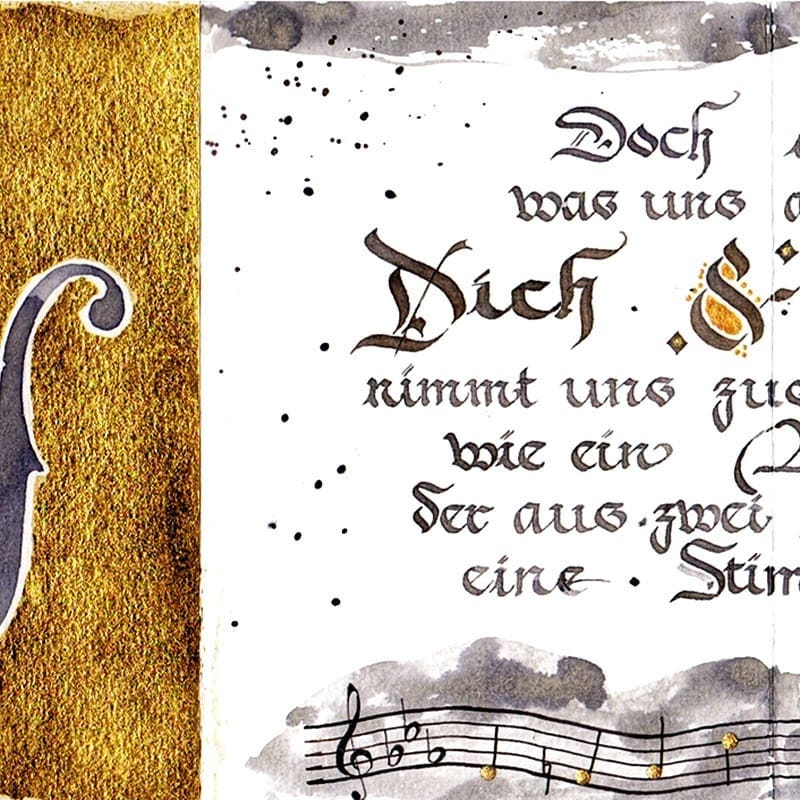 Doch
was uns
Dich &
nimmt uns
wie ein
der aus zwei
eine